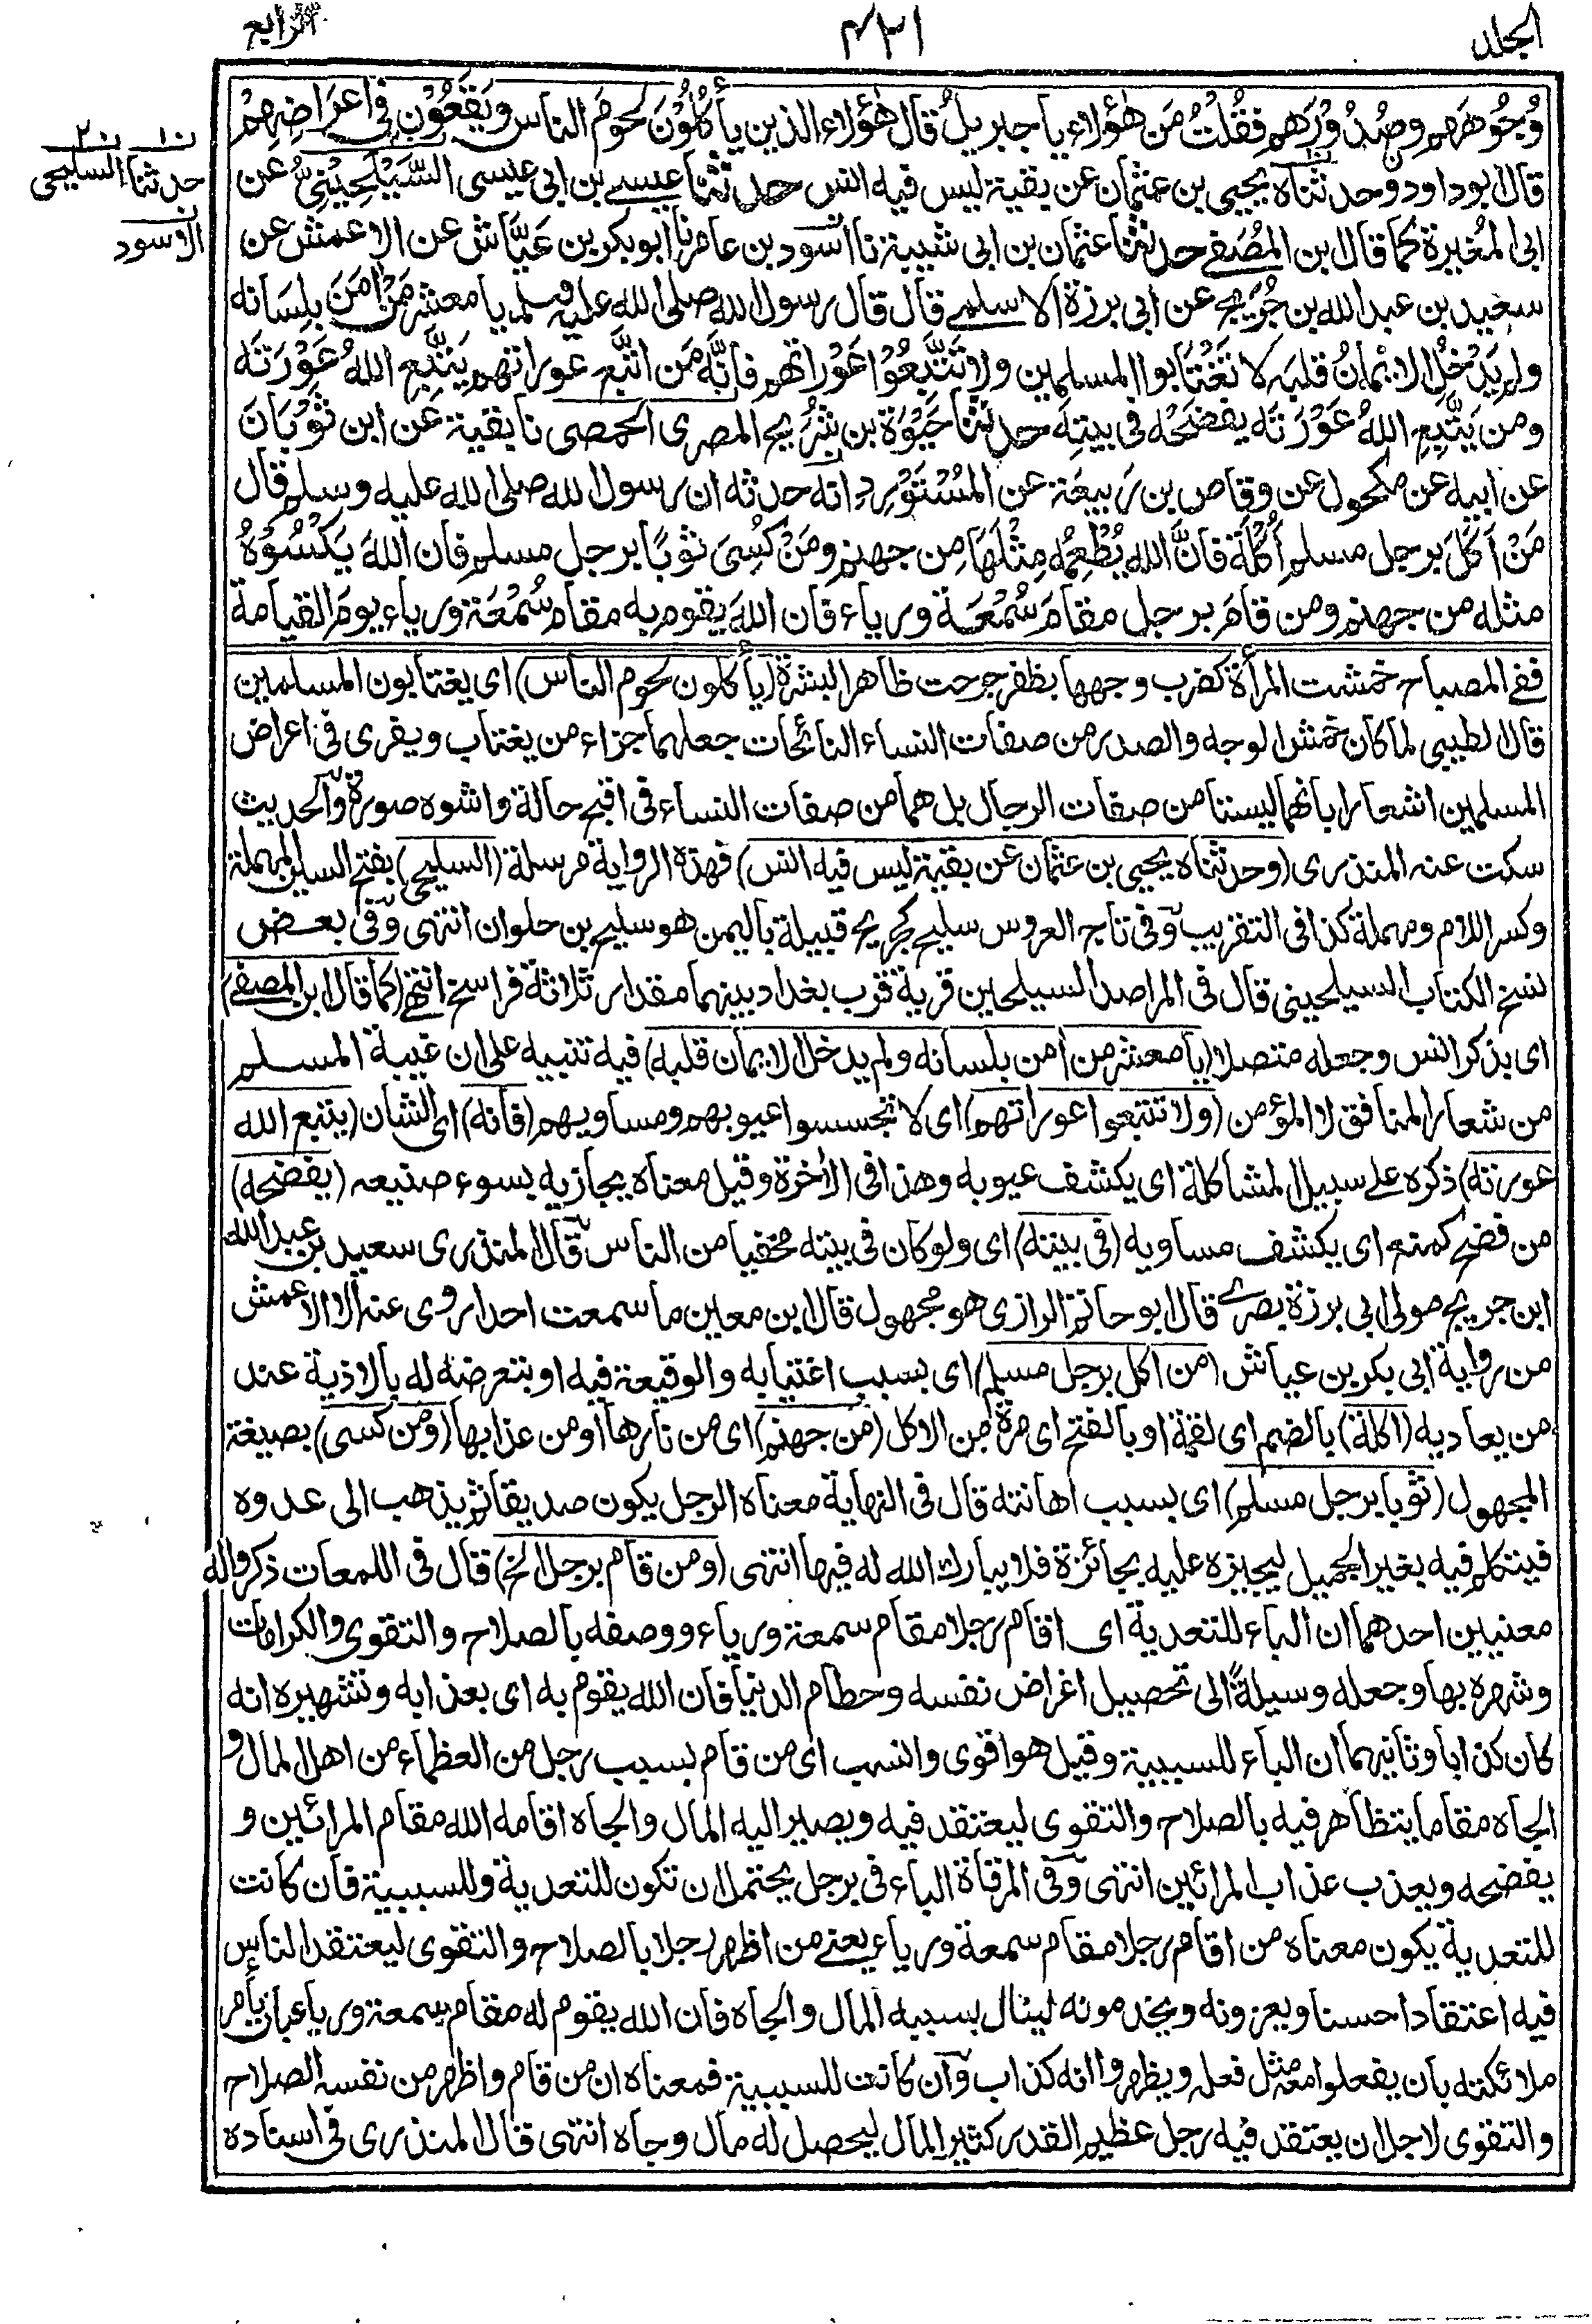 الجلد
٤٢١
الرابع
وُجُوهَهم وصُدُورَهم فقُلْتُ مَن هٰؤلاء يا جبريلُ قال هٰؤلاء الذين يأكُلُوْنَ لحومَ الناس ويَقَعُوْن في اعرَاضِهِمْ
قال ابو داود وحدثناه يحيى بن عثمان عن بقية ليس فيه انس حدثنا عيسى بن ابى عيسى السَّيْلَحِيْنِيُّ عن
ابى المُغيرة كما قال بن المُصَفّٰى حدثنا عثمان بن ابى شيبة نا اسود بن عامر نا ابو بكر بن عَيَّاش عن الاعمش عن
سعيد بن عبد الله بن جُرَيج عن ابى برزة الاسلمى قال قال رسول الله صلى الله عليه وسلم يا معشر مَنْ اٰمَنَ بلِسَانه
ولم يَدْخُلِ الايْمانُ قلبَه لا تَغْتَابوا المسلمين ولا تَتَّبِعُوْا عَوْراتهم فانَّه مَن اتَّبَع عوراتهم يَتَّبِعِ اللهُ عَوْرَتَه
ومن يَتَّبِعِ اللهُ عَوْرَتَه يفضَحْه فى بيتِه حدثنا حَيْوَة بن شُرَيح المصرى الحمصى نا بقية عن ابن ثَوْبَانَ
عن ابيه عن مكحول عن وقاص بن رَبيعَة عن المُسْتَوْرِد انه حدثه ان رسول الله صلى الله عليه وسلم قال
مَنْ اَكَلَ برجل مسلم اُكْلَة فانَّ الله يُطْعِمُه مِثْلَهَا مِن جهنم ومَنْ كُسِىَ ثوبًا برجل مسلم فان اللهَ يَكْسُوْهُ
مثله من جهنم ومن قامَ برجل مقامَ سُمْعَة ورياء فان اللهَ يقوم به مقام سُمْعَة ورياء يومَ القيامة
ففى المصباح خمشت المرأة كضرب وجهها بظفر جرحت ظاهر البشرة (يأكلون لحوم الناس) اى يغتابون المسلمين
قال الطيبى لما كان خمش الوجه والصدر من صفات النساء النائحات جعلهما جزاء من يغتاب ويفرى فى اعراض
المسلمين اشعارا بانهما ليستا من صفات الرجال بل هما من صفات النساء فى اقبح حالة واشوه صورة والحديث
سكت عنه المنذرى (وحدثناه يحيى بن عثمان عن بقية ليس فيه انس) فهذه الرواية مرسلة (السليحى) بفتح السين المهملة
وكسر اللام ومهملة كذا فى التقريب وفى تاج العروس سليح كجريح قبيلة باليمن هو سليح بن حلوان انتهى وفى بعض
نسخ الكتاب السيلحينى قال فى المراصد السيلحين قرية قرب بغداد بينهما مقدار ثلاثة فراسخ انتهى (كما قال ابن المصفى)
اى بذكر انس وجعله متصلا (يا معشر من اٰمن بلسانه ولم يدخل الايمان قلبه) فيه تنبيه على ان غيبة المسلم
من شعار المنافق لا المؤمن (ولا تتبعوا عوراتهم) اى لا تجسسوا عيوبهم ومساويهم (فانه) اى الشان (يتبع الله
عورته) ذكره على سبيل المشاكلة اى يكشف عيوبه وهذا فى الاٰخرة وقيل معناه يجازيه بسوء صنيعه (يفضحه)
من فضح كمنع اى يكشف مساويه (فى بيته) اى ولو كان فى بيته مخفيا من الناس قال المنذرى سعيد بن عبد الله
ابن جريج مولى ابى برزة بصرى قال ابو حاتم الرازى هو مجهول قال ابن معين ما سمعت احدا روى عنه الا الاعمش
من رواية ابى بكر بن عياش (من اكل برجل مسلم) اى بسبب اغتيابه والوقيعة فيه او بتعرضه له بالاذية عند
من يعاديه (اكلة) بالضم اى لقمة او بالفتح اى مرة من الاكل (من جهنم) اى من نارها او من عذابها (ومن كسى) بصيغة
المجهول (ثوبا برجل مسلم) اى بسبب اهانته قال فى النهاية معناه الرجل يكون صديقا ثم يذهب الى عدوه
فيتكلم فيه بغير الجميل ليجيزه عليه بجائزة فلا يبارك الله له فيها انتهى (ومن قام برجل الخ) قال فى اللمعات ذكروا له
معنيين احدهما ان الباء للتعدية اى اقام رجلا مقام سمعة ورياء ووصفه بالصلاح والتقوى والكرامات
وشهره بها وجعله وسيلةً الى تحصيل اغراض نفسه وحطام الدنيا فان الله يقوم به اى بعذابه وتشهيره انه
كان كذابا وثانيهما ان الباء للسببية وقيل هو اقوى وانسب اى من قام بسبب رجل من العظماء من اهل المال و
الجاه مقاما يتظاهر فيه بالصلاح والتقوى ليعتقد فيه ويصير اليه المال والجاه اقامه الله مقام المرائين و
يفضحه ويعذب عذاب المرائين انتهى وفى المرقاة الباء فى برجل يحتمل ان تكون للتعدية وللسببية فان كانت
للتعدية يكون معناه من اقام رجلا مقام سمعة ورياء يعنى من اظهر رجلا بالصلاح والتقوى ليعتقد الناس
فيه اعتقادا حسنا ويعزونه ويخدمونه لينال بسببه المال والجاه فان الله يقوم له مقام سمعة ورياء بان يأمر
ملائكته بان يفعلوا معه مثل فعله ويظهروا انه كذاب وان كانت للسببية فمعناه ان من قام واظهر من نفسه الصلاح
والتقوى لاجل ان يعتقد فيه رجل عظيم القدر كثير المال ليحصل له مال وجاه انتهى قال المنذرى فى اسناده
حدثنا السليحى
الاسود